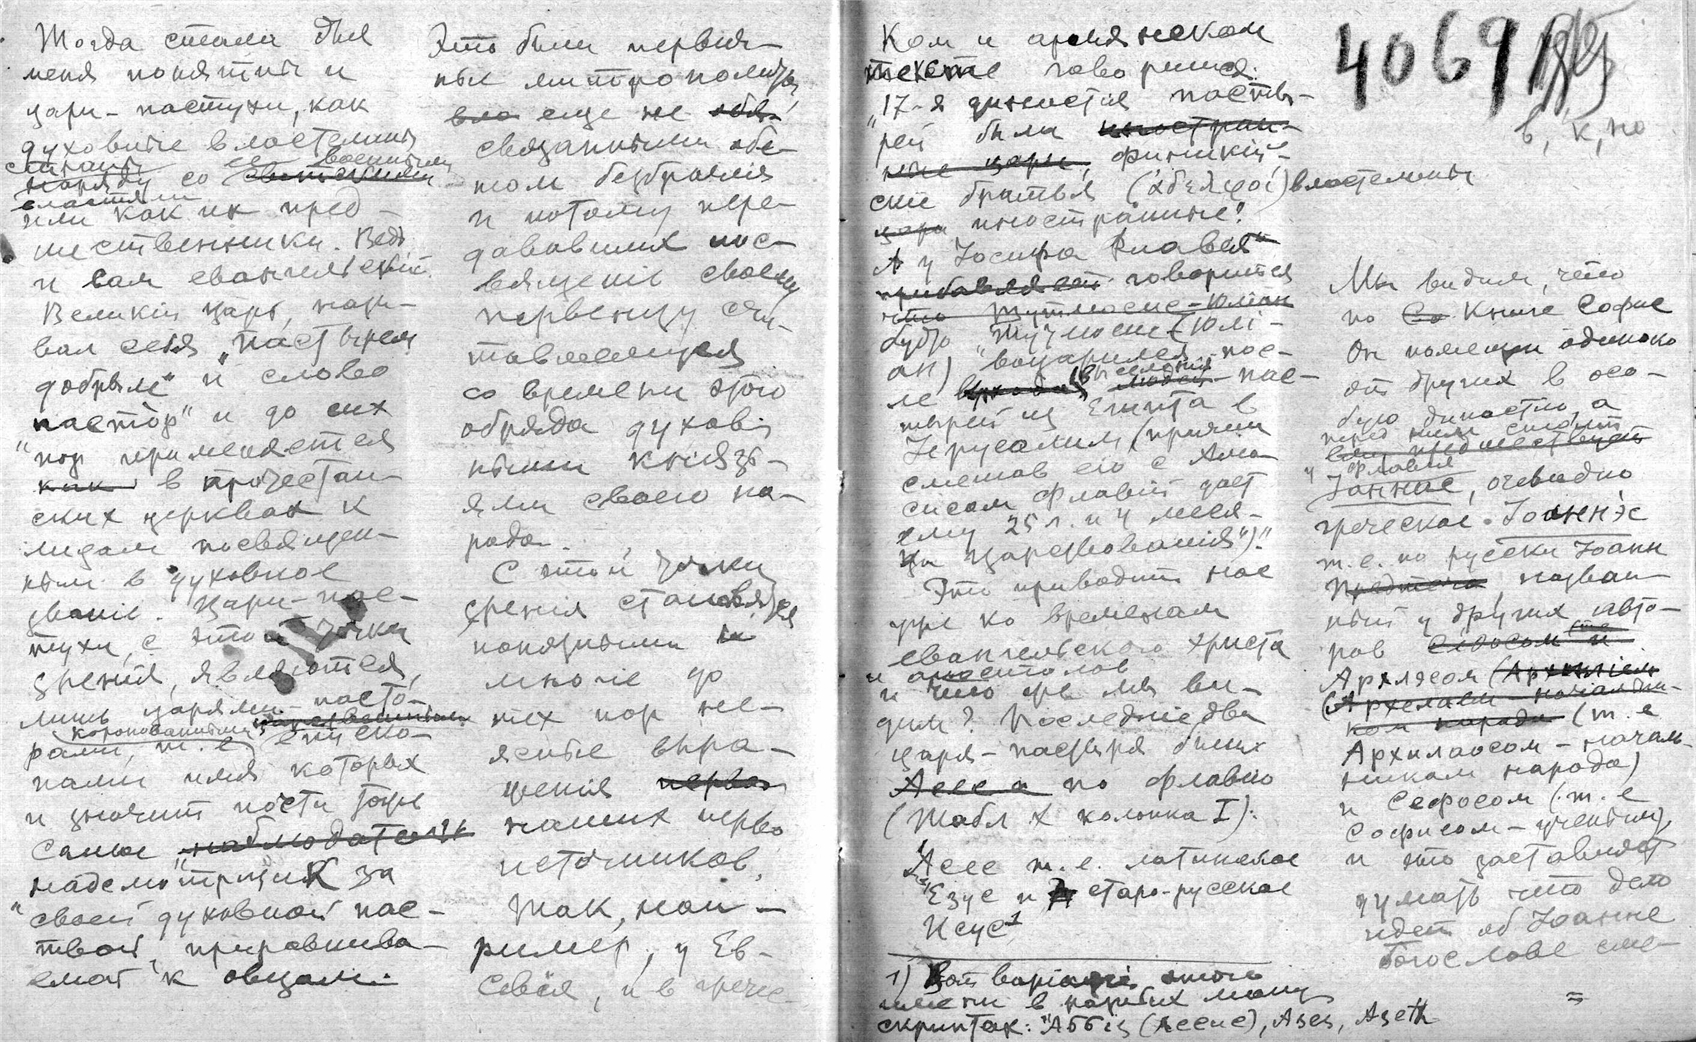 Тогда стали для
меня понятны и
цари-пастухи, как
духовные властелины
наряду со светскими
властями
или как их пред-
шественники. Ведь
и сам евангельскій
Великій царь, назы-
вал себя „пастырем
добрым“ и слово
„пастор“ и до сих
пор применяется
как в протестан-
ских церквах к
лицам посвящен-
ным в духовное
званіе. Цари-пас-
тухи, с этой точки
зренія, являются,
лишь царями-пасто-
коронованными
рами, т.е. еписко-
пами имя которых
и значит почти тоже
самое наблюдатели
надсмотрщик за
„своей духовной пас-
твой, приравнива-
емой к овцам.
Это были первич-
ные митрополиты,
еще не
связанными обе-
том безбрачія
и потому пере-
дававших пос-
вященіе своему
первенцу счи-
тавшемуся
со времени этого
обряда духов-
ными князь-
ями своего на-
рода.
С этой точки
зренія становятся
понятными и
многіе до
тех пор не-
ясные выра-
женія перво
наших перво
источников.
Так, нап-
ример, у Ев-
севія, и в гречес-
ком и армянском
тексте говорится:
„17-я династія пасты-
рей были иностран-
ные цари, финикій-
скіе братья (ἀδελφοί) властелины
цари иностранные“.
А у Іосифа Флавія
прибавляет говорится
что Тутмосис-Юліан
будто Тутмосис (Юлі-
ан) „воцарился пос-
ле выселенія пас-
тырей из Египта в
Іерусалим (причем
смешав его с Ама-
сисом Флавій дает
ему 25 л. и 4 меся-
ца царствованія“).
Это приводит нас
уже ко временам
евангельского Христа
и апостолов
и что же мы ви-
дим? Последніе два
царя-пастыря были
Ассс и по Флавію
(Табл X колонка I):
„Асес т.е. латинское
„Езус и старо-русское
Исус¹
1) Вот варіанты этого
имени в разных ману
скриптах: "Аббіз (Ассис), Азез, Азетh
4069
в, к, но
Мы видим, что
по Книге Софис
Он помещен одиноко
от других в осо-
бую династію, а
перед ним стоит
ему предшествует
у Флавія
Іаннас, очевидно
греческое Іоаннэс
т.е. по русски Іоанн
Предтеча, назван-
ный у других авто-
ров Сефосом и
Архлясом (Архангел
(Архелаем начальни-
ком народа (т.е
Архилаосом - началь-
ником народа)
и Сефосом (т.е
Софисом - ученым),
и это заставляет
думать что дело
идет об Іоанне
Богослове сме-
=